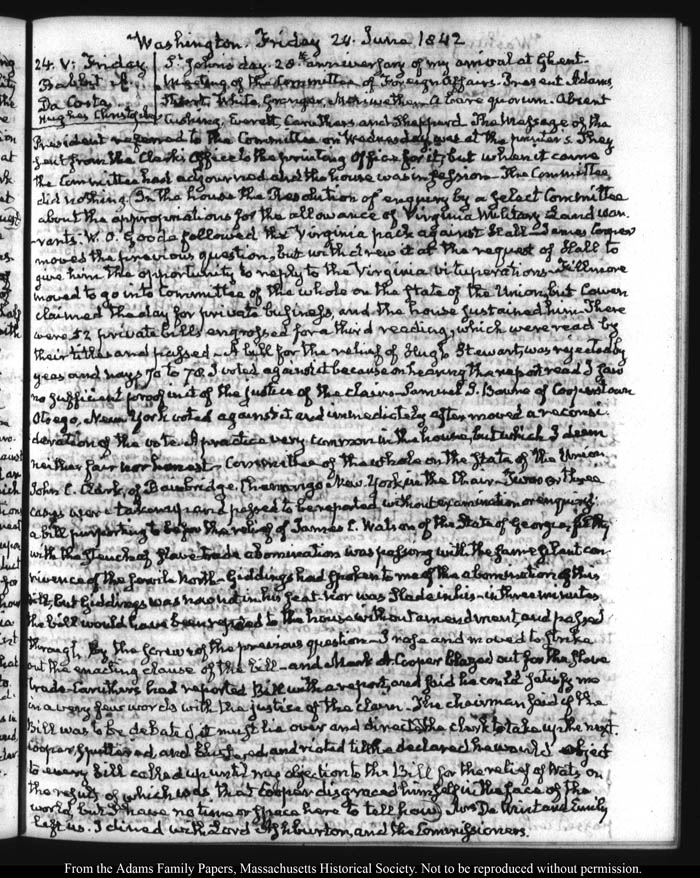 Washington. Friday 24. June 1842
24. V: Friday. St. John's day. 28th anniversary of my arrival at Ghent.
Meeting of the Committee of Foreign Affairs. Present Adams,
Da Costa. White, Granger, Meriwether. A bare quorum. Absent
Hughes Christopher Cushing, Everett, Caruthers and Shepperd. The Message of the
President referred to the Committee on Wednesday was at the printer's. They
sent from the Clerk's Office to the printing Office for it; but when it came
the Committee had adjourned and the house was in session. The Committee
did nothing. In the house the Resolution of enquiry by a select Committee
about the appropriations for the allowance of Virginia Military Land war-
rants. W. O. Goode followed the Virginia pack against Hall. James Cooper
moved the previous question, but withdrew it at the request of Hall to
give him the opportunity to reply to the Virginia vituperations. Fillmore
moved to go into Committee of the whole on the state of the Union, but Cowen
claimed the day for private business, and the house sustained him. There
were 52 private bills engrossed for a third reading, which were read by
their titles and passed. A bill for the relief of Hugh Stewart, was rejected by
yeas and nays 70 to 78. I voted against it because on hearing the report read I saw
no sufficient proof in it of the justice of the claim. Samuel S. Bowne of Cooperstown
Otsego, New York voted against it, and immediately after moved a reconsi-
deration of the vote. A practice very common in the house, but which I deem
neither fair nor honest. Committee of the whole on the State of the Union.
John C. Clark, of Bainbridge, Chenango New York in the Chair. Two or three
cases were taken up and passed to be reported without examination or enquiry.
a bill purporting to be for the relief of James C. Watson of the State of Georgia,
with the stench of slave trade abomination was passing with the same silent con-
nivence of the servile North. Giddings had spoken to me of the abomination of this
bill, but Giddings was now not in his seat nor was Slade in his. in three minutes
the bill would have been reported to the house without amendment and passed
through, by the screw of the previous question. I rose and moved to strike
out the enacting clause of the bill. and Mark A. Cooper blazed out for the slave
trade. Caruthers had reported Bill with a report, and said he could satisfy me
in a very few words with the justice of the claim. The chairman said if the
Bill was to be debated, it must lie over and directed the clerk to take up the next.
Cooper, sputtered, and blustered, and rioted till he declared he would object
to every bill called up until my objection to the Bill for the relief of Watson
the result of which was that Cooper disgraced himself in the face of the
world but I have no time or space here to tell how. Mrs De Wint and Emily
left us. I dined with Lord Ashburton, and the Commissioners.
From the Adams Family Papers, Massachusetts Historical Society. Not to be reproduced without permission.